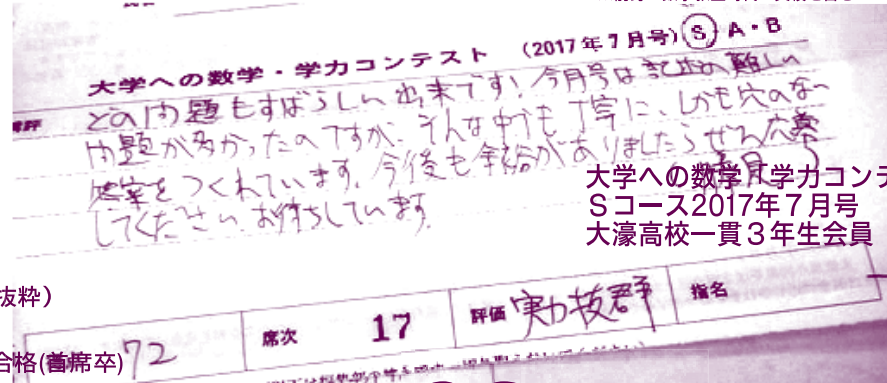 大学への数学・学力コンテスト （2017年7月号）Ⓢ A・B
どの問題もすばらしい出来です！今月号は記述の難しい
問題が多かったのですが、そんな中でも丁寧に、しかも穴のない
答案をつくれています。今後も余裕がありましたらぜひ応募
してください。お待ちしています。
大学への数学 学力コンテ
Ｓコース2017年７月号
大濠高校一貫３年生会員
抜粋）
72 席次 17 評価 実力抜群 指名
合格(首席卒)